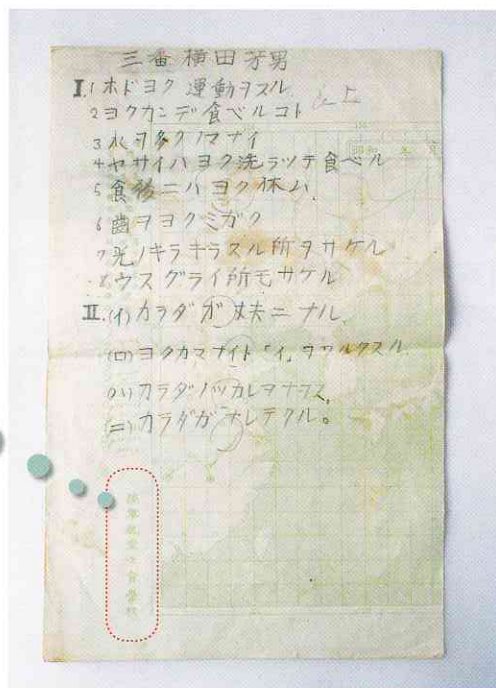 三番 横田芳男
I.1 ホドヨク 運動ヲスル
2 ヨクカンデ食ベルコト
3 水ヲ多クノマナイ
4 ヤサイハヨク洗ラッテ食ベル
5 食後ニハヨク休ム
6 歯ヲヨクミガク
7 光ノキラキラスル所ヲサケル
8 ウスグライ所モサケル
II.(イ)カラダガ 丈夫ニナル.
(ロ)ヨクカマナイト「イ」ヲワルクスル
(ハ)カラダノツカレヲナラス。
(ニ)カラダガナレテクル。
昭和 年 月